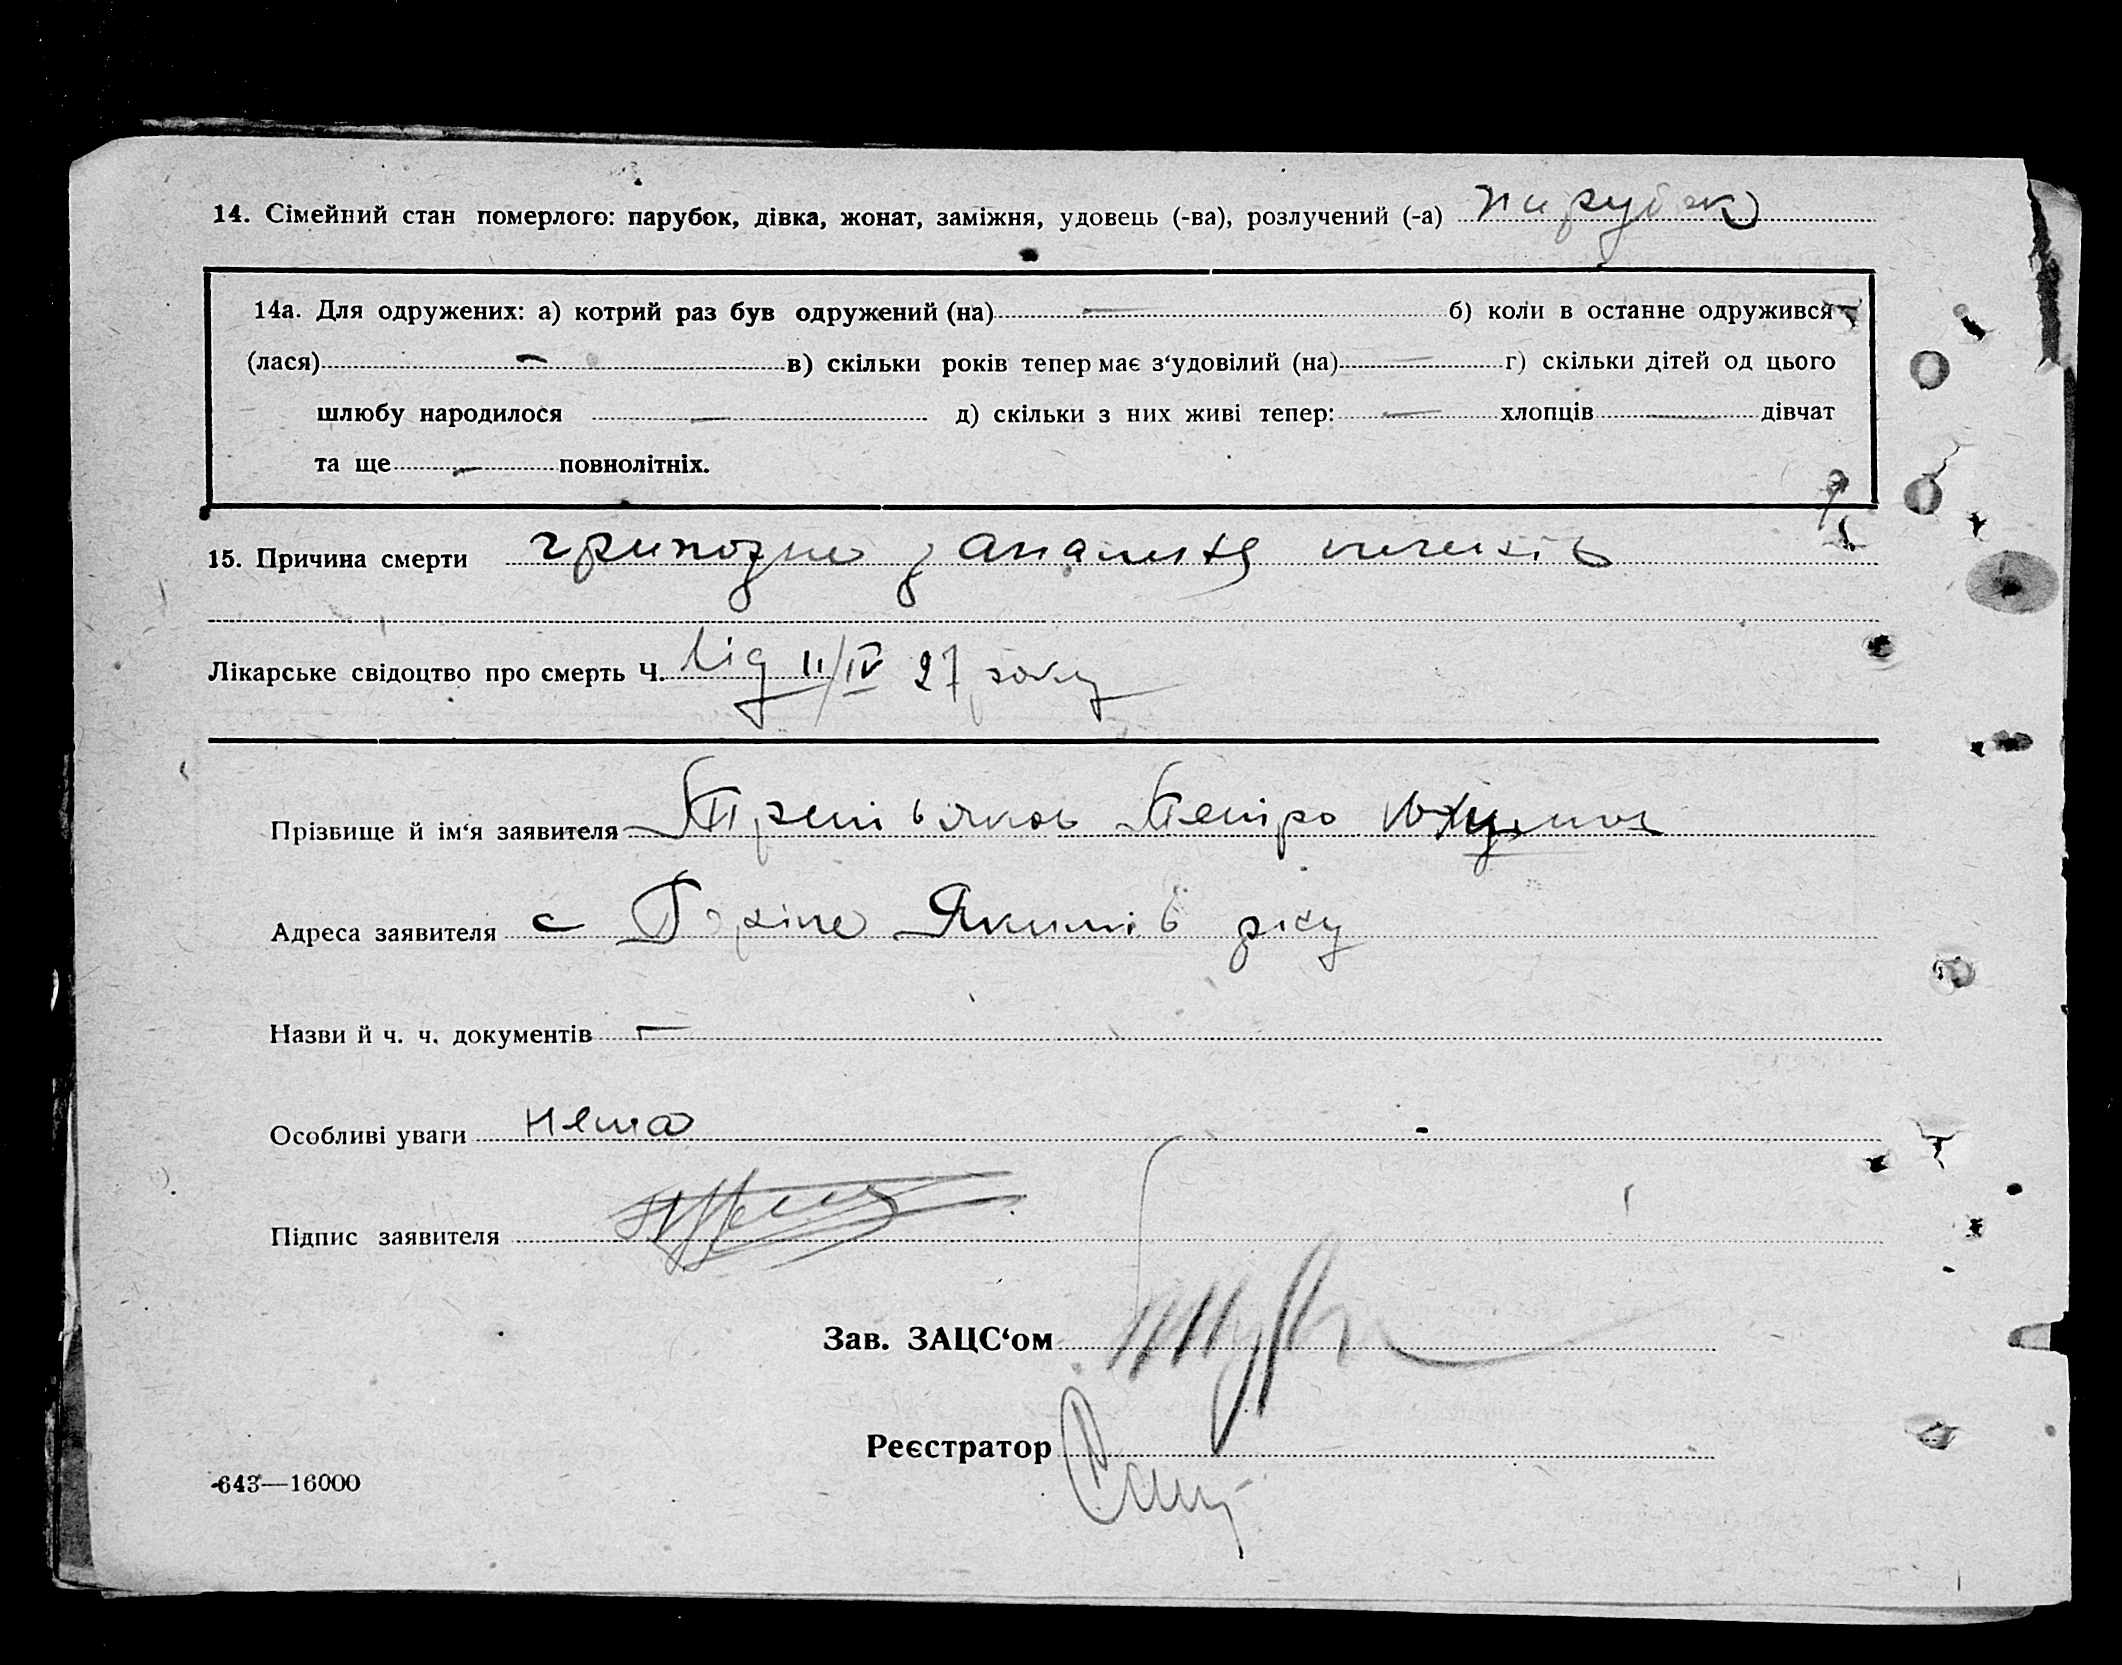 14. Сімейний стан померлого: парубок, дівка, жонат, заміжня, удовець (-ва), розлучений (-а) парубок
14а. Для одружених: а) котрий раз був одружений (на) — б) коли в останнє одружився —
(лася) — в) скільки років тепер має з‘удовілий (на) — г) скільки дітей од цього
шлюбу народилося — д) скільки з них живі тепер: — хлопців — дівчат
та ще — повнолітніх.
15. Причина смерти грипозне
Лікарське свідоцтво про смерть Ч. Від 11/IV 27 року
Прізвище й ім‘я заявителя Третьяков Петро
Адреса заявителя с Якимів рну
Назви й ч. ч. документів —
Особливі уваги нема
Підпис заявителя
Зав. ЗАЦС‘ом
Реєстратор
643—16000